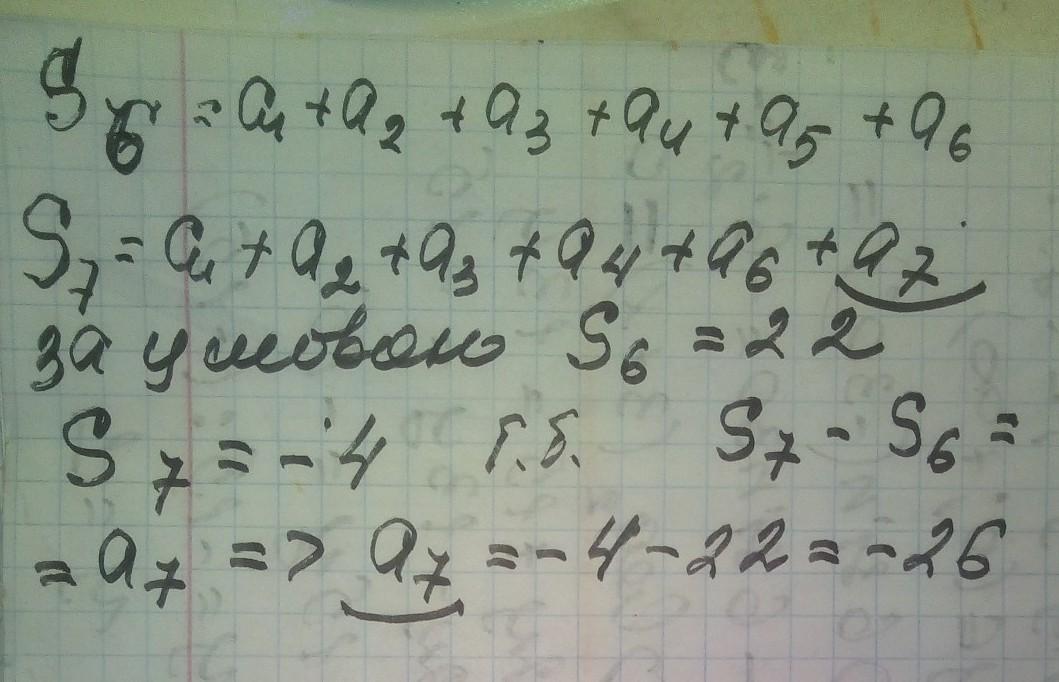 S₆ = a₁ + a₂ + a₃ + a₄ + a₅ + a₆
S₇ = a₁ + a₂ + a₃ + a₄ + a₆ + a₇
за умовою S₆ = 22
S₇ = -4 т.б. S₇ - S₆ =
= a₇ => a₇ = -4 - 22 = -26